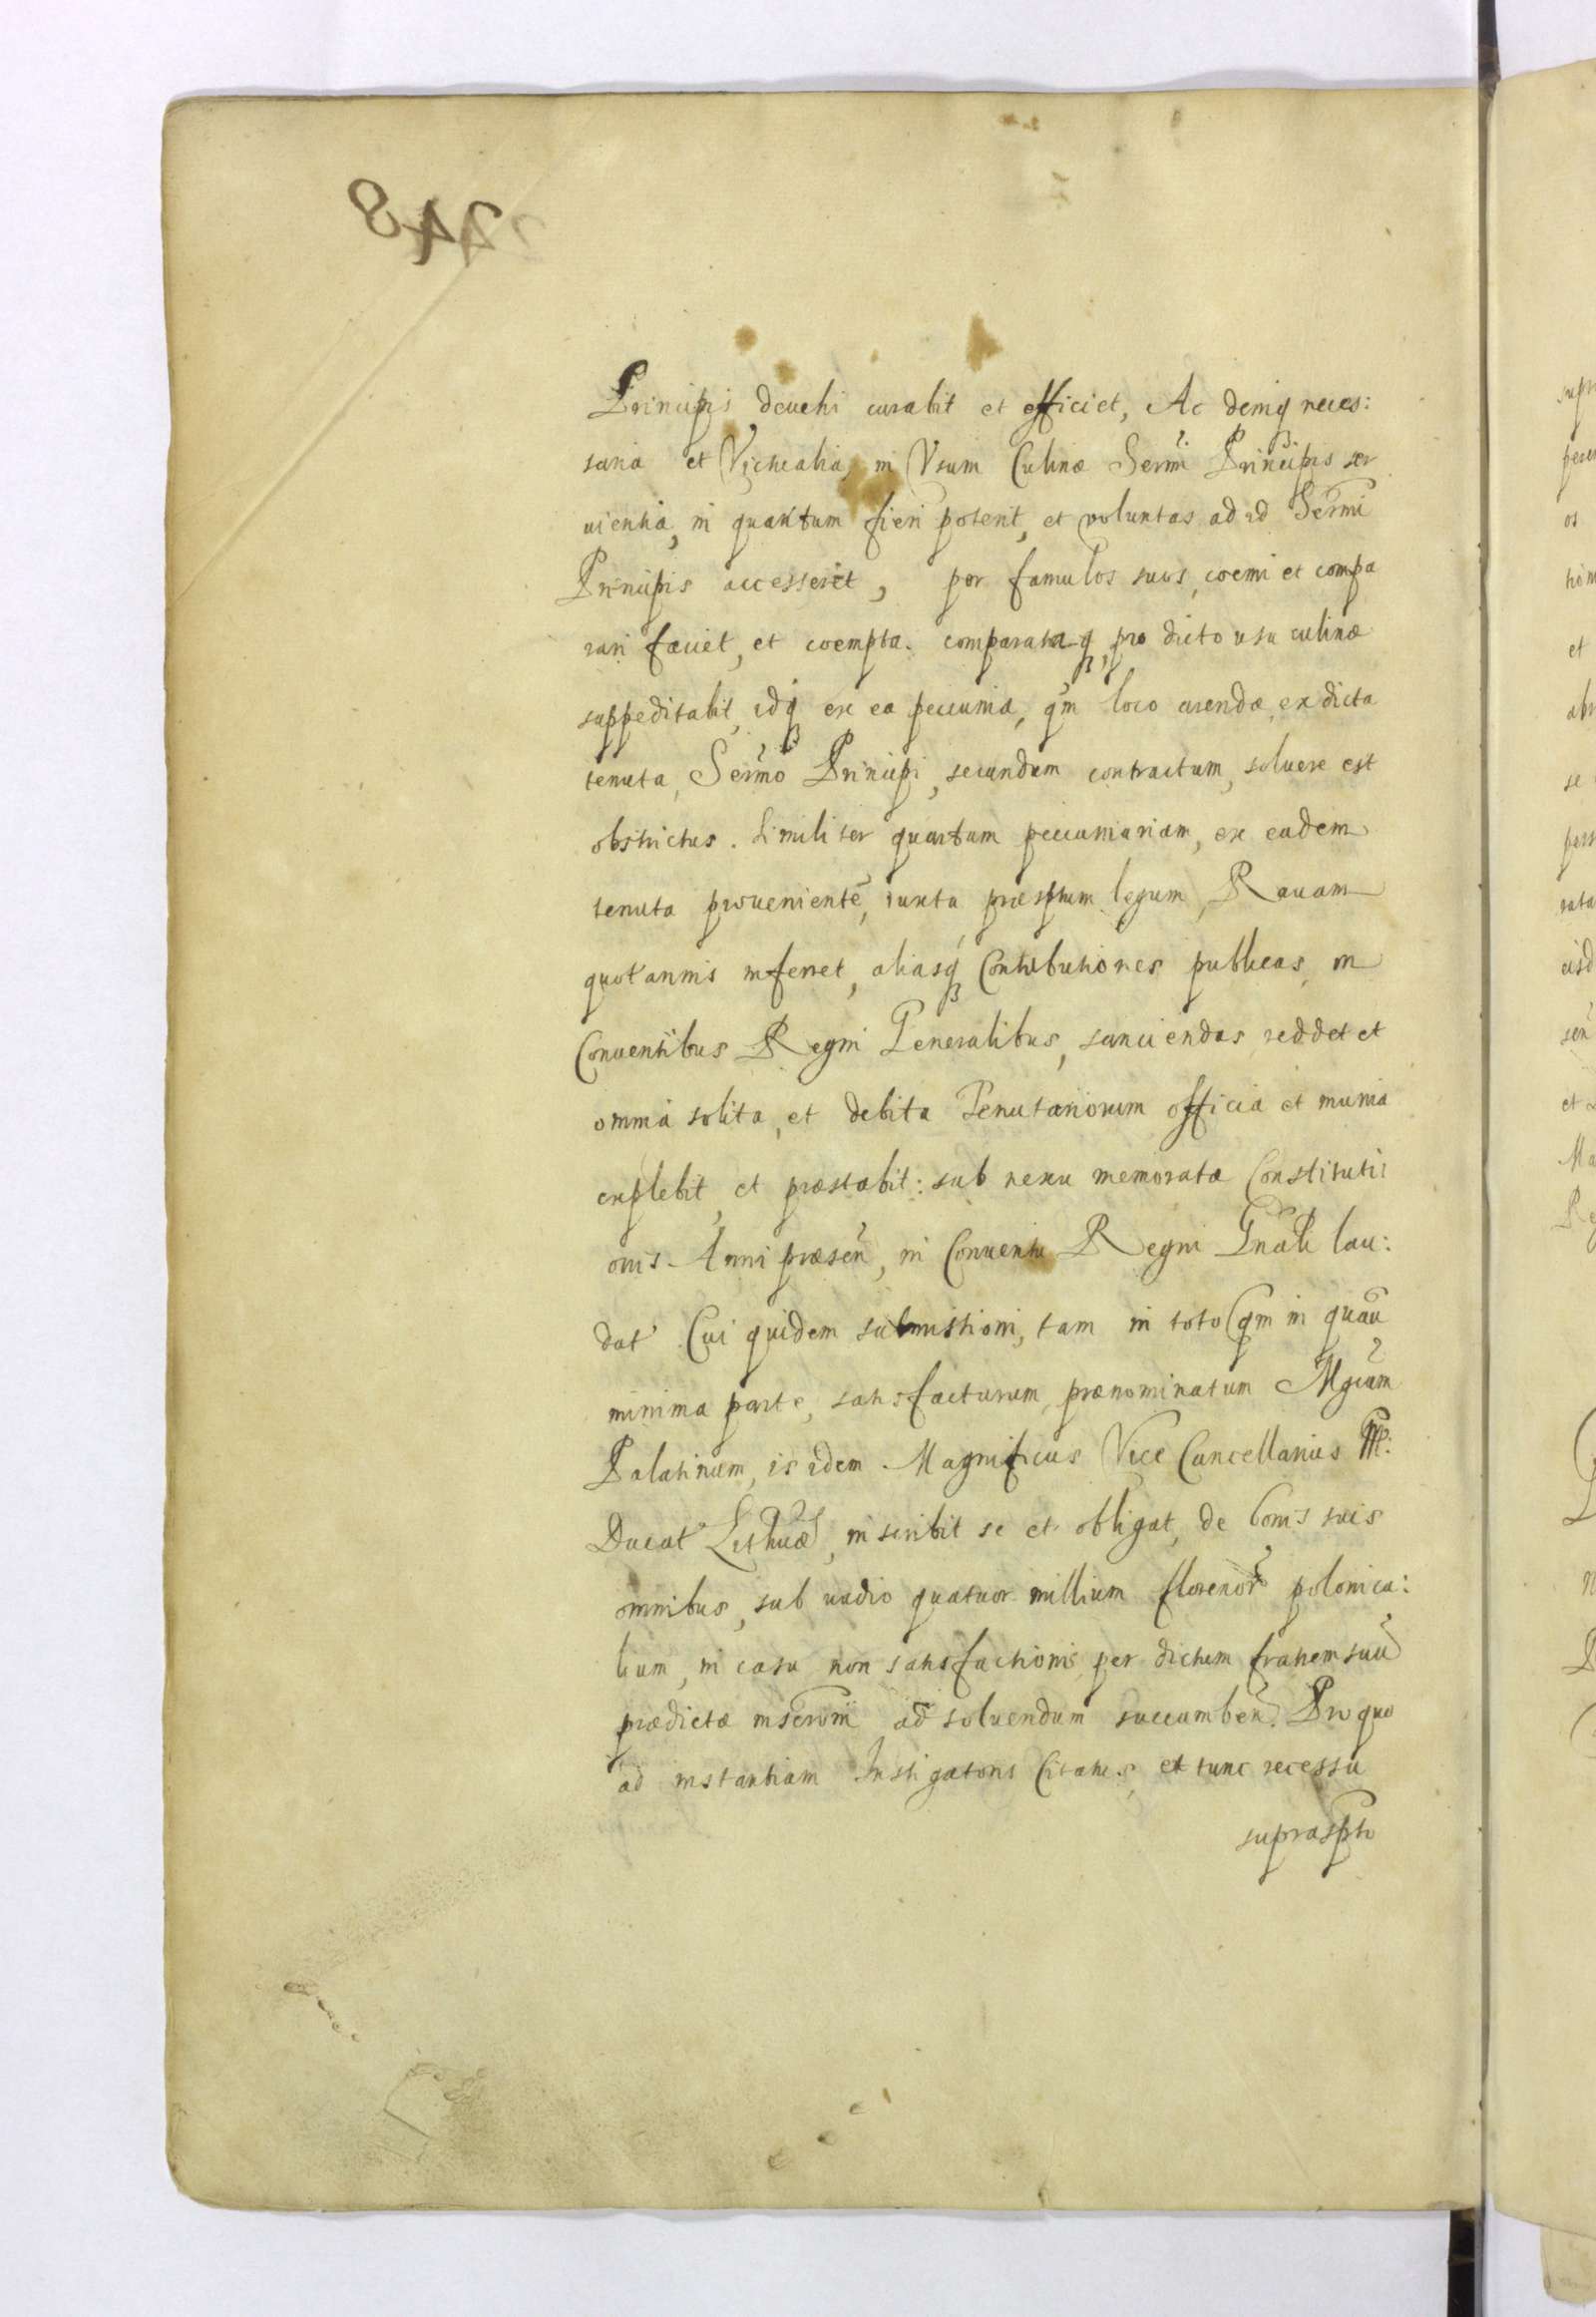 248
Principis deuehi curabit et efficiet, Ac deniq neces:
saria et Victualia, in Vsum Culinæ Sermi Principis ser
uientia, in quantum fieri poterit, et voluntas ad id Sermi
Principis accesserit, per famulos suos, coemi et compa
rari faciet, et coempta comparataq, pro dicto usu culinæ
suppeditabit, idq ex ea pecunia, qm loco arendæ, ex dicta
tenuta, Sermo Principi, secundum contractum, soluere est
obstrictus. Similiter quartam pecuniariam, ex eadem
tenuta prouenientē, iuxta præsptum legum, Rauam
quotannis inferret, aliasq Contributiones publicas, in
Conuentibus Regni Generalibus, sanciendas reddet et
omnia solita, et debita Tenutariorum officia et munia
explebit, et præstabit: sub nexu memoratæ Constituti:
onis Anni præsen, in Conuentu Regni Gnali lau:
dat Cui quidem submissioni, tam in toto qm in quau
minima parte, satisfacturum, prænominatum Mgcum
Palatinum, is idem Magnificus Vice Cancellarius
Ducat Lithuæ, inscribit se et obligat, de bonis suis
omnibus, sub vadio quatuor millium florenor polonica:
lium, in casu non satisfactionis per dictum fratrem suū
prædictæ inscrōni ad soluendum succumben. Pro quo
ad instantiam Instigatoris Citatus, et tunc recessu
supraspto